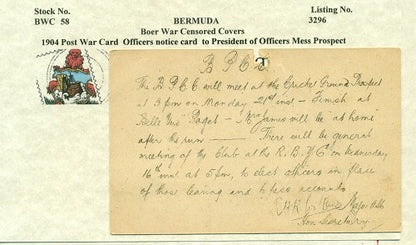 Stock No. BERMUDA Listing No.
BWC 58 Boer War Censored Covers 3296
1904 Post War Card Officers notice card to President of Officers Mess Prospect
B P C C
The B.P.C.C will meet at the Cricket Ground Prospect
at 3 pm on Monday 21st inst - Finish at
Belle Vue Paget - Mrs James will be "at home"
after the run — There will be general
meeting of the Club at the R.B.Y.C on Wednesday
16th inst at 5 pm, to elect officers in place
of those leaving and to pass accounts
Major
Hon Secretary